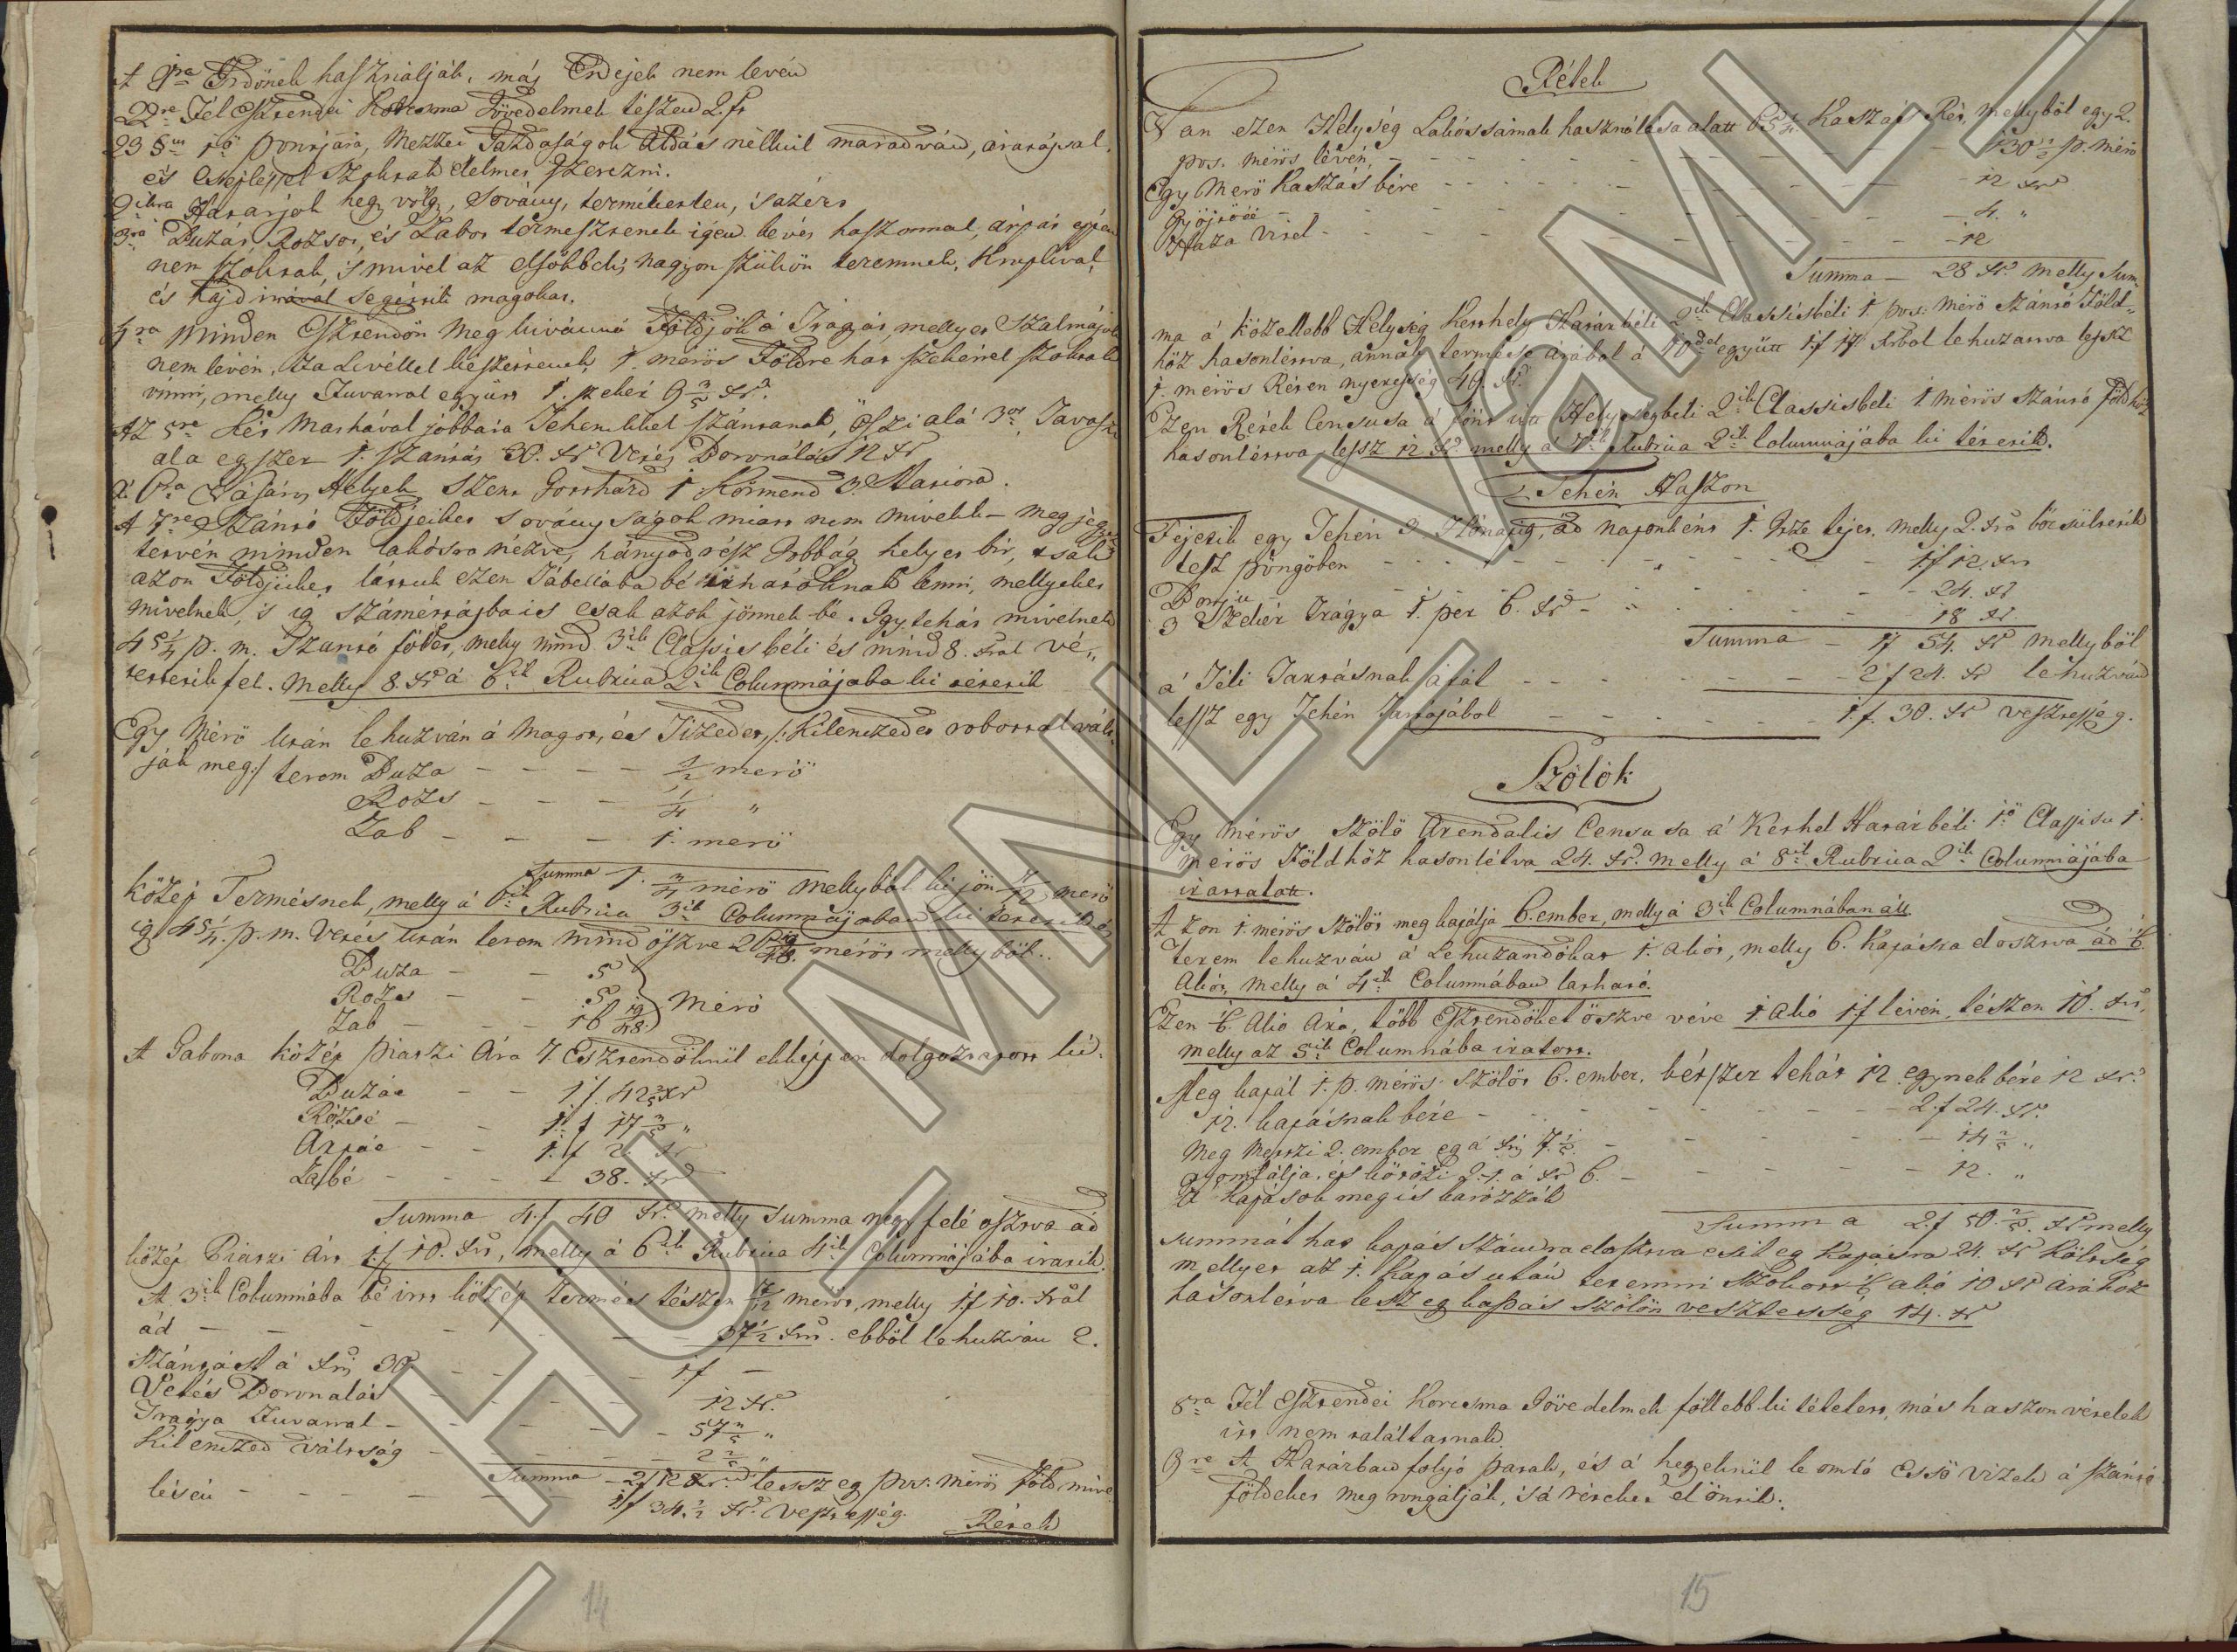 A 9ra Erdőnek használják, más Erdejek nem levén
22re Fél Esztendei Korcsma Jövedelmek tészen 2. fr
23 5m ső pontjára, Mezzei Gazdaságok Áldás nélkül maradván, aratással,
és Csépléssel szoktak élelmet szerezni.
2ikra Határjok hegy völgy, sovány, terméketlen, 's azért
3ra Buzát, Rozsot, és Zabot termesztenek igen kevés haszonnal, árpát éppen
nem szoktak, 's mivel az elsőbbek is nagyon szükön teremnek, Kruplival,
és hajdinával segéttik magokat.
4ra Minden Esztendőn meg kivánná Földjök a Trágyát, mellyet Szalmájok
nem lévén, Za Levéllel készétenek, 1. mérős Földre hat szekérrel szoktak
vinni, melly Fuvarral együtt 1. szekér 9 3/5 xr.
Az 5re Két Marhával jobbára Tehenekkel szántanak, őszi alá 3or, Tavaszi
ala egyszer 1. szántás 30. xr Vetés Boronálás 12 xr
A 6ra Vásáros Helyek Szent Gotthárd 1 Körmend 3. Statiora.
A 7re Szántó Földjeiket soványságok miatt nem mivelik – meg jegyez
tetvén minden lakósra nézve, hányod rész Jobbág helyet bir, csak
azon Földjüket láttuk ezen Tábellába bé irhatóknak lenni, mellyeket
mivelnek, 's ig számétásba is csak azok jönnek bé. Igy tehát mivelnek
45 1/4 p. m. Szántó földet, melly mind 3ik Classisbéli és mind 8. xral vé,,
tettetik fel. Melly 8. xr á 6ik Rubrica 2ik Columnájába ki tétetik
Egy Mérő után lehuzván á Magot, és Tizedet, /: Kilenczedet robottal vált-
ják meg:/ terem Buza – – – – 1/2 merő
Rozs – – – 1/4 "
Zab – – – 1. merő
Summa 1. 3/4 mérő mellyből ki jön 7/12 merő
közép Termésnek, melly á 6ik Rubrica 3ik Columnájában ki tétetik és
ig 45 1/4. p. m. Vetés után terem mind öszve 26 19/48 mérős mellyből..
Buza – – 5
Rozs – – 5 } Mérő
Zab – – – 16 19/48.
A Gabona közép piaczi Ára 7. Esztendőknül ekképpen dolgoztatott ki.
Buzáé – – 1 f. 42 2/5 xr
Rozsé – – 1. f 17 3/5 "
Árpáé – – 1. f 2 xr
Zabbé – – – – 38. xr
Summa 4. f 40 xr. melly summa négy felé osztva ád
közép Piaczi árt 1. f 10. xrt, melly á 6ik Rubrica 4ik Columnájába iratik.
A 3ik Columnába bé irtt közép termés tészen 7/12 merőt, melly 1. f 10. xrál
ád – – – – – – – 37 1/2 xrt. ebből lehuzván 2.
Szántást á xrj 30 – – – – 1 f –
Vetés Boronálás – – – 12 xr.
Trágya Fuvarral – – – – 57 3/5 "
Kilenczed váltság – – – 2 2/5 "
Summa – 2 f 12 xr. lessz eg pos. mérős Föld mive
lésén – – – – – 1 f 34 1/2 xr. Vesztesség.
Rétek
14
Rétek
Van ezen Helység Lakóssainak használása alatt 65 1/4 Kaszás Rét, mellyből egy 2.
pos. mérős lévén, – – – – – – – 130 1/2 p. mérő
Egy Merő kaszás bére – – – – – – 12 xr
Gyöjtőé – – – – – – – 4. "
Haza Vitel – – – – – – – 12
Summa – 28 xr. melly sum-
ma á közellebb Helység Kerthely Határbéli 2ik Classisbéli 1 pos. mérő Szántó Föld-
höz hasonléttva, annak termése árából á 10del együtt 1 f 17 xrból lehuzattva lessz
1. mérős Réten nyereség 49. xr.
Ezen Rétek Censusa á fönt irtt Helységbeli 2ik Classisbeli 1 mérős szántó földhöz
hasonléttva lessz 12 xr. melly á 7ik Rubrica 2ik Columnájába ki tétetik.
Tehén Haszon
Fejetik egy Tehén 3 Hónapig, ád naponként 1. Itze tejet, melly 2. xrá böcsültetik
lesz pöngőben – – – – – – – 1 f 12 xrr
Bornju – – – – – – – 24. xr
3 Szekér Trágya 1. per 6. xr – – – – – 18 xr
Summa – 1 f 54. xr mellyből
á Téli Tartásnak árát – – – – – – 2 f 24. xr lehuzván
lessz egy Tehén Tartásából – – – – – 1. f. 30. xr vesztesség.
Szőlők
Egy mérős szőlő Arendalis Censusa á Kerthel Határbéli 1ő Classisu 1.
mérős Földhöz hasonlétva 24. xr. melly á 8ik Rubrica 2ik Columnájába
irattatott.
Azon 1. mérős szőlőt meg kapálja 6. ember, melly á 3ik Columnában áll
Terem lehuzván á Lehuzandókat 1. akót, melly 6. kapásra eloszva ád 1/6.
Akót, melly á 4ik Columnában látható.
Ezen 1/6. Akó Ára, több Esztendőket öszve véve 1. Akó 1 f lévén, tészen 10. xrt,
melly az 5ik Columnába iratott.
Meg kapál 1. p. mérős szőlőt 6. ember, kétszer tehát 12 egynek bére 12 xr.
12. kapásnak bére – – – – – – – 2. f 24. xr.
Meg Metszi 2. ember eg á xrj 7 1/5 – – – – 14 2/5 "
gyomlálja, és kötözi 2t. á xr 6. – – – – – 12. "
A kapások meg is karózzák
Summa 2. f 50. 2/5. xr melly
summát hat kapás számra elosztva esik eg Kapásra 24. xr költség
mellyet az 1. Kapás után teremni szokott 1/6 akó 10 xr árához
hasonlétva lesz eg kapás szőlön vesztesség 14. xr
8ra Fél Esztendei Korcsma Jövedelmek föllebb ki tétetett, más haszonvételek
itt nem találtatnak.
9re A Határban folyó patak, és á hegyeknül le omló Essö vizek á szántó
földeket meg rongálják, 's á réteket el öntik.
15
HU MNL VaML
HU MNL